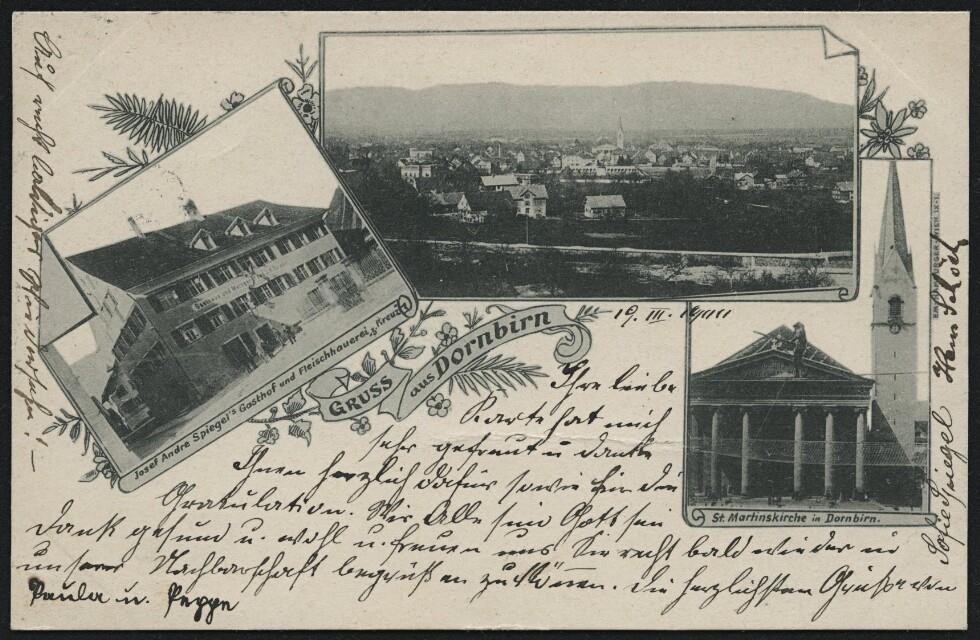 Josef Andre Spiegel's Gasthof und Fleischhauerei z. Kreuz
GRUSS
aus Dornbirn
St. Martinskirche in Dornbirn.
19. III. 1900
Ihre liebe
Karte hat mich
sehr gefreut u danke
Ihnen herzlich dafür sowie für die
Gratulation. Wir Alle sind Gott sei
dank gesund u. wohl u. freuen uns Sie recht bald wieder in
unserer Nachbarschaft begrüßen zu können. Die herzlichsten Grüße von
Paula u. Peppe
Sofie Spiegel